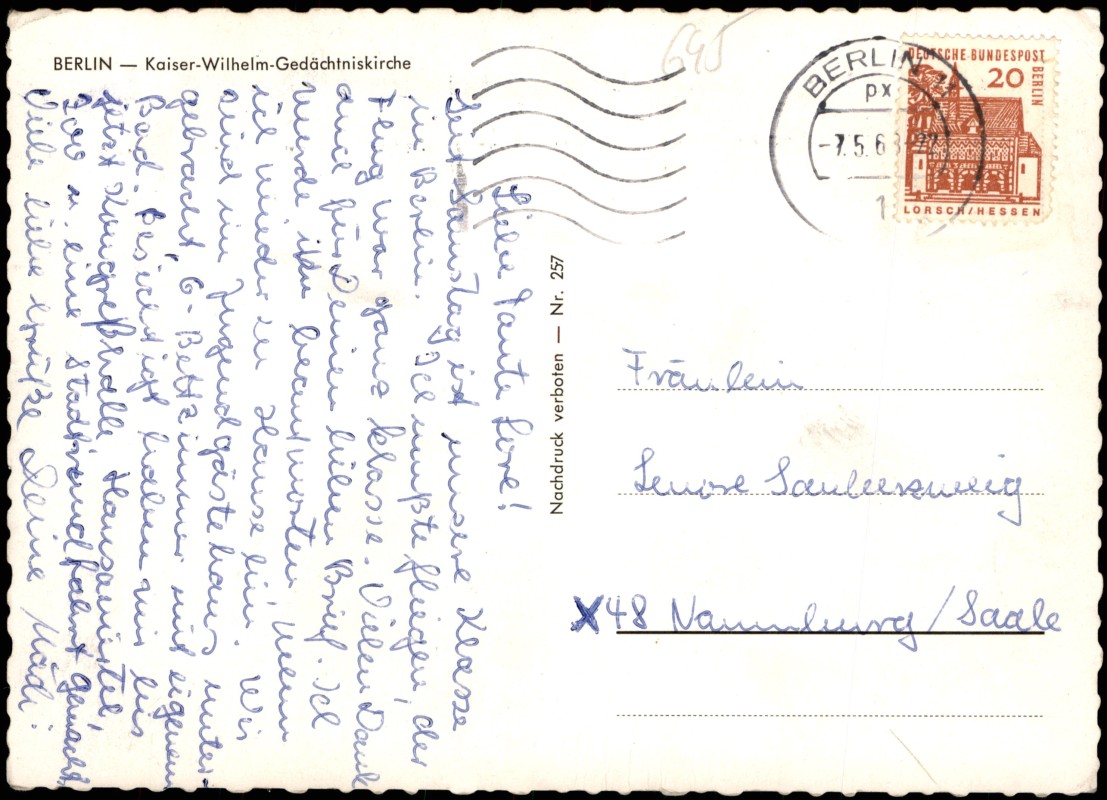 BERLIN — Kaiser-Wilhelm-Gedächtniskirche
645
BERLIN
px
-7.5.6
1
DEUTSCHE BUNDESPOST
BERLIN
20
LORSCH/HESSEN
Liebe Tante Lore!
Seit Samstag ist unsere Klasse
in Berlin. Ich mußte fliegen, der
Flug war ganz klasse. Vielen Dank
auch für Deinen lieben Brief. Ich
werde ihn beantworten wenn
ich wieder zu Hause bin. Wir
sind im Jugendgästehaus unter-
gebracht, 6-Bettzimmer mit eigenem
Bad. Besichtigt haben wir bis
jetzt Kongreßhalle, Hansaviertel,
Zoo u. eine Stadtrundfahrt gemacht
Viele liebe Grüße Deine
Nachdruck verboten — Nr. 257
Fräulein
Lenore Sauberzweig
X48 Naumburg/Saale